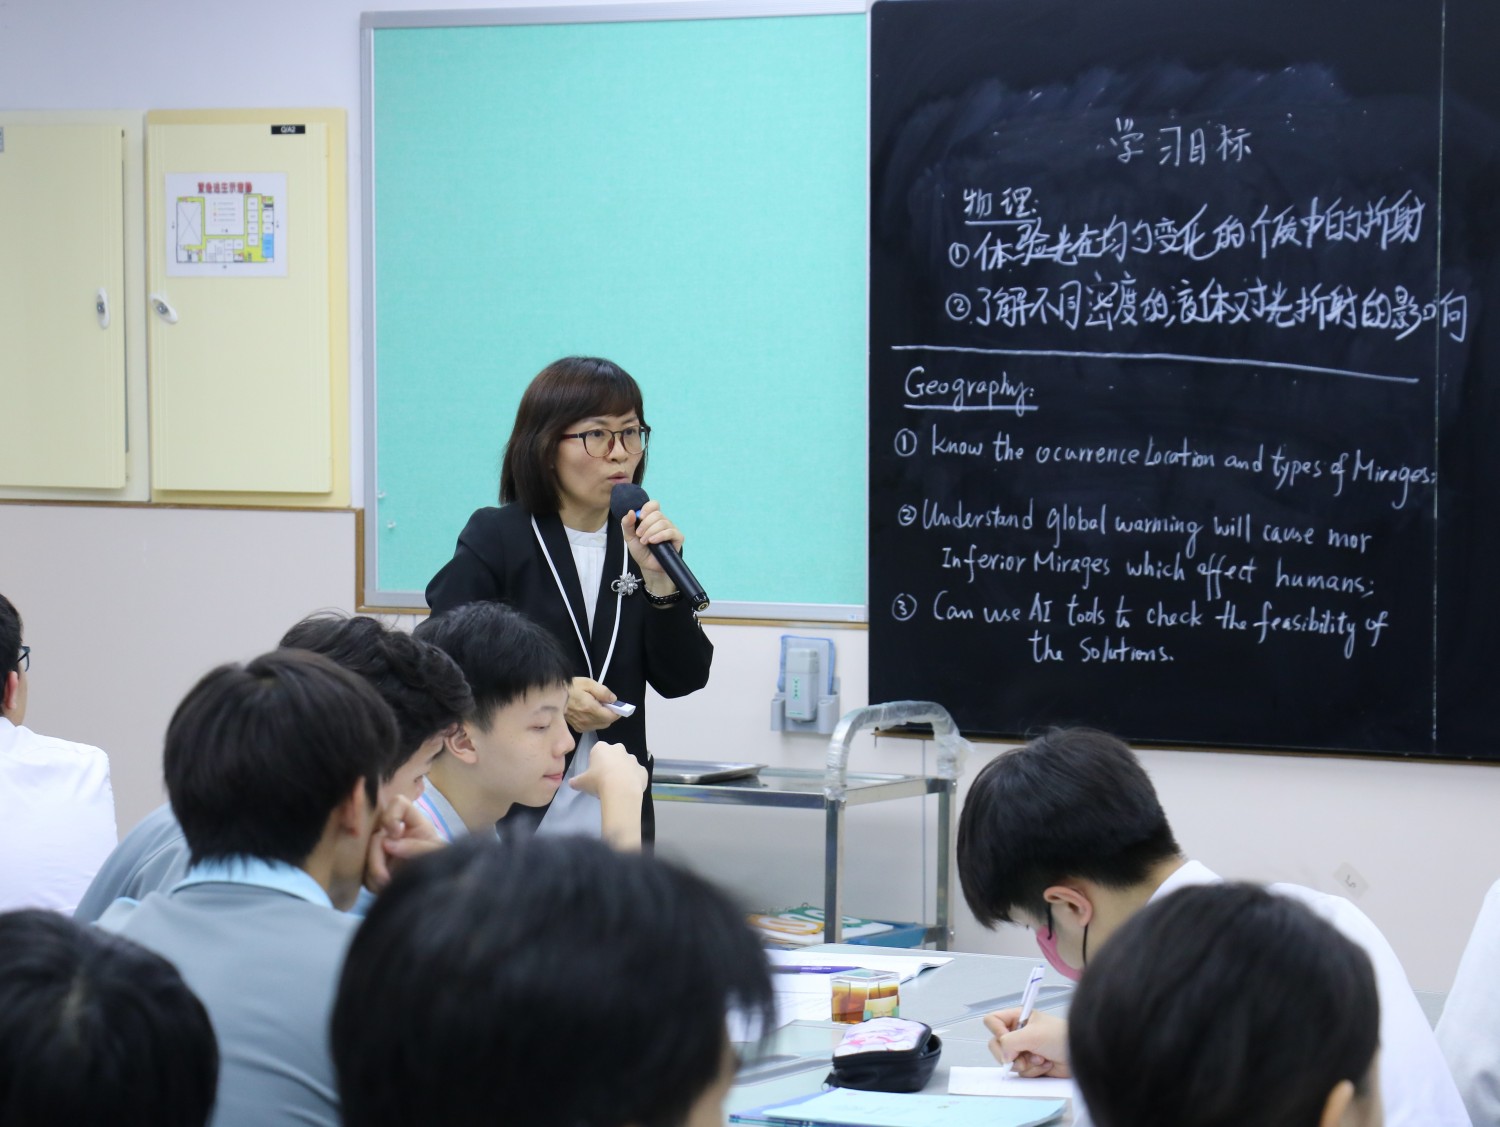 G/A2
學习目标
物理:
① 体验光在均匀变化的介质中的折射
② 了解不同密度的液体对光折射的影响
Geography:
① Know the ocurrence Location and types of Mirages;
② Understand global warming will cause mor
Inferior Mirages which affect humans;
③ Can use AI tools to check the feasibility of
the Solutions.